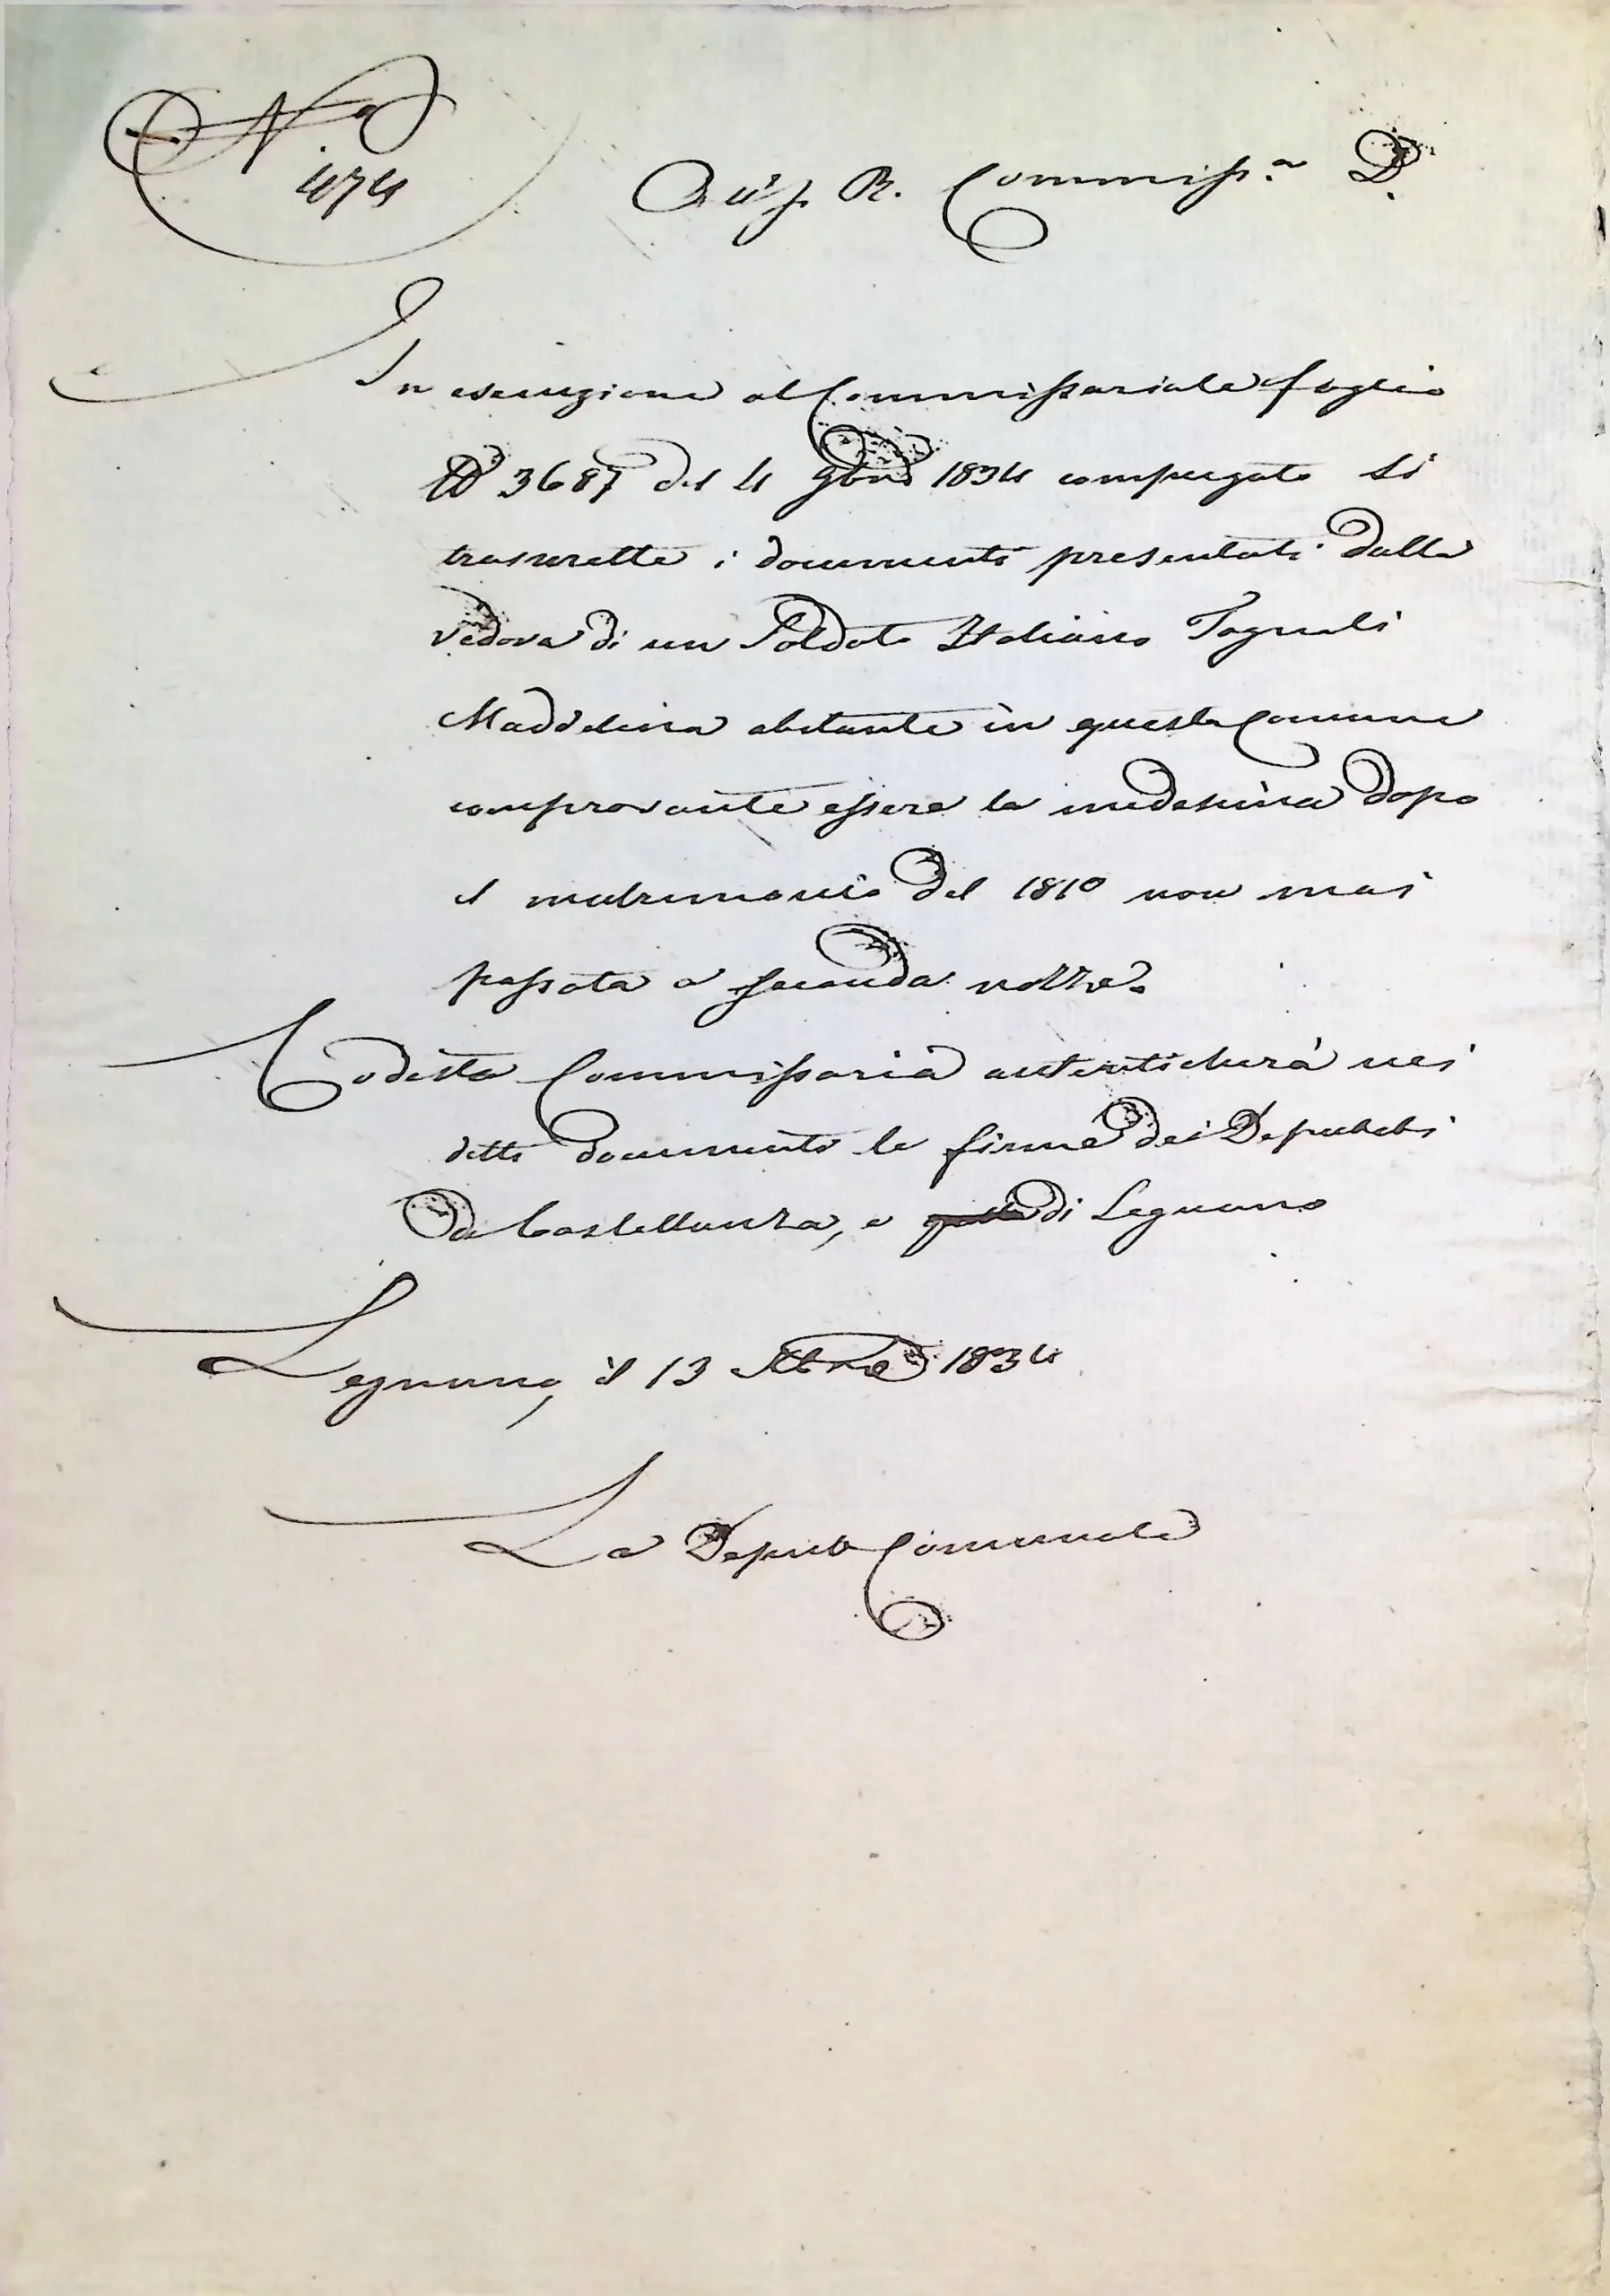 N.º
474
All'I. R. Commiss.ª D.
In esecuzione al Commissariale foglio
N 3687 del 4 9bre 1834 compiegato si
trasmette i documenti presentati dalla
vedova di un Soldato Italiano
Maddelena abitante in questa Comune
comprovante essere la medesima dopo
il matrimonio del 1810 non mai
passata a seconda nozze.
Codesta Commissaria autenticherà nei
detti documenti le firme dei Deputati
di Castellanza, e di Legnano
Legnano, il 13 1834
La Deput Comunale